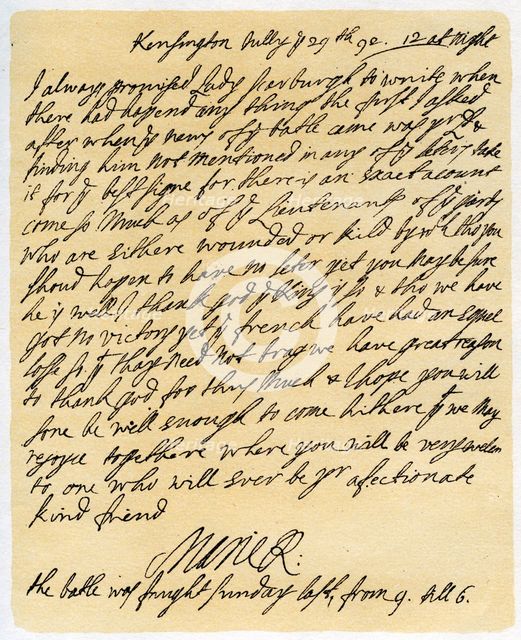 Kensington Jully ye 29th 92. 12 at night
I always promised Lady Scarburgh to write when
there had hapend any thing the first I asked
after when ye news of ye batle came was yr Ld &
finding him not mentioned in any of ye leters take
it for ye best signe for there is an exact account
come so much as of ye Lieutenants of ye gards
who are eithere wounded or kild by wch tho you
shoud hapen to have no leter yet you may be sure
he is well I thank god ye King is so & tho we have
got no victory yet ye french have had an equel
losse so yt thay need not brag we have great reason
to thank god for thus much & I hope you will
sone be well enough to come hithere yt we may
rejoyce togethere where you will be very wellcom
to one who will ever be yr afectionate
kind friend
Marie R.
the batle was fought Sunday last, from 9. till 6.
Heritage